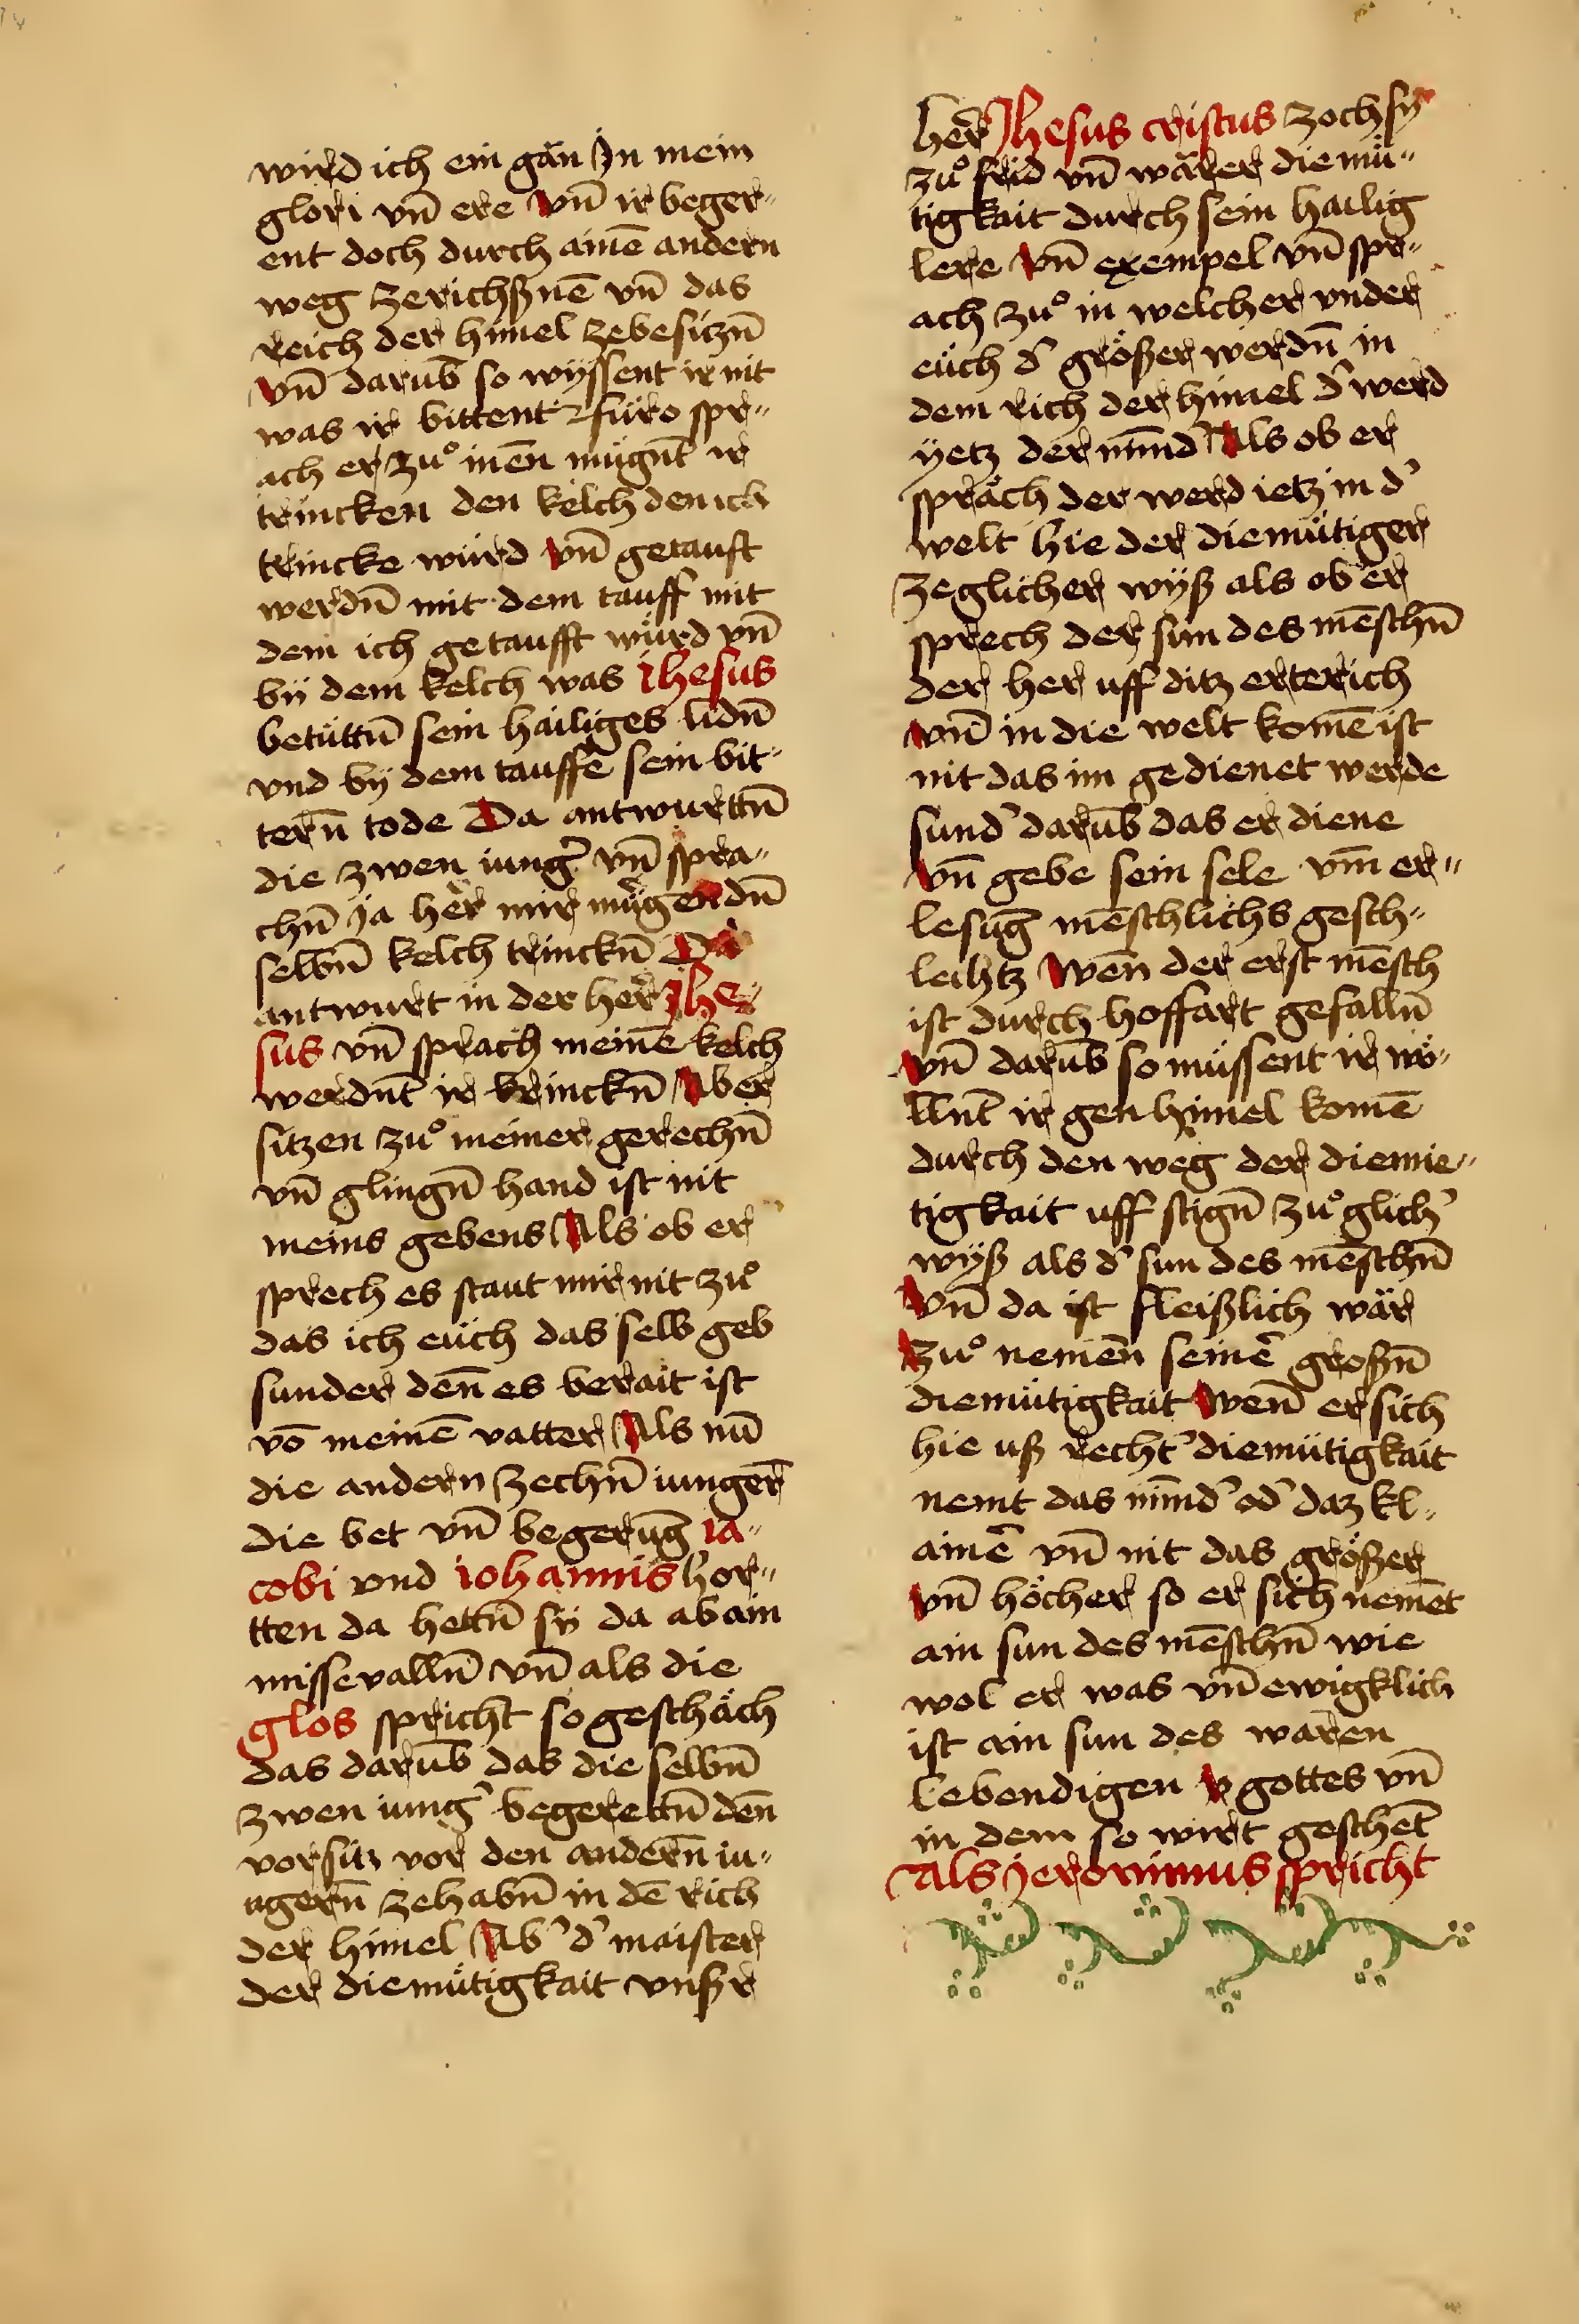 wird ich ein gän Jn mein
glori vn̄ ere vn̄ ir beger„
ent doch durch ainē andern
weg zerichßnē vn̄ das
reich der himel zebesitzn̄
vn̄ darūb so wyssent ir nit
was ir bittent füro spr„
ach er zuͦ inen mügnt̄ ir
trincken den kelch den ich
trincke würd vn̄ getauft
werdn̄ mit dem tauff mit
dem ich getaufft würd vn̄
bÿ dem kelch was Jhesus
betüttn̄ sein hailiges lidn̄
vnd bÿ dem tauffe sein bit„
tern̄ tode Da antwurttn̄
die zwen iung̉ vn̄ spra„
chn̄ ja her̄ mir mügen dn̄
selbn̄ kelch trinckn̄ Da
antwurt in der her̄ Jhe„
sus vn̄ sprach meinē kelch
werdnt̄ ir trinckn̄ Aber
sitzen zuͦ meiner gerechn̄
vn̄ glingn̄ hand ist nit
meins gebens Als ob er
sprech es staut mir nit zuͦ
das ich eüch das selb geb
sunder den̄ es berait ist
vō meinē vatter Als nū
die andern zechn̄ iunger̄
die bet vn̄ begerūg ia„
cobi vnd iohannis hor„
tten da hettn̄ sÿ da ab ain
missevalln̄ vn̄ als die
glos spricht so geschäch
das darūb das die selbn̄
zwen iung̉ begerettn̄ den̄
vorsitz vor den andern̄ iu„
ngern̄ zehabn̄ in dē rich
der himel Ab̉ d̉ maister
der diemütigkait vnßr
her̄ Jhesus cristus zoch sÿ
zuͦ frid vn̄ wärer diemü„
tigkait durch sein hailig
lere vn̄ exempel vn̄ spr„
ach zuͦ in welcher vnder
eüch d̉ größer werdn̄ in
dem rich der himel d̉ werd
ÿetz der mind̉ Als ob er
spräch der werd ietz in d̉
welt hie der diemütiger
zeglicher wÿß als ob er
sprech der sun des mēschn̄
der her uff ditz erterich
vn̄ in die welt komē ist
nit das im gedienet werde
sund̉ darūb das er diene
vn̄ gebe sein sele vm̄ er„
lesūg mēschlichs gesch„
lechtz Wen̄ der erst mēsch
ist durch hoffart gefalln̄
vn̄ darūb so müssent ir wö„
llnt̄ ir gen himel komē
durch den weg der diemie„
tigkait uff stign̄ zuͦ glich̉
wÿß als d̉ sun des mēschn̄
vn̄ da ist fleißlich wär
zuͦ nemen̄ seinē großn̄
diemütigkait Wen̄ er sich
hie uß recht̉ diemütigkait
nemt das mind̉ od̉ daz kl„
ainē vn̄ nit das größer
vn̄ höcher so er sich nemēt
ain sun des mēschn̄ wie
wol er was vn̄ ewigklich
ist ain sun des waren
lebendigen gottes vn̄
in dem so wirt geschet̄
Als jeronimus spricht